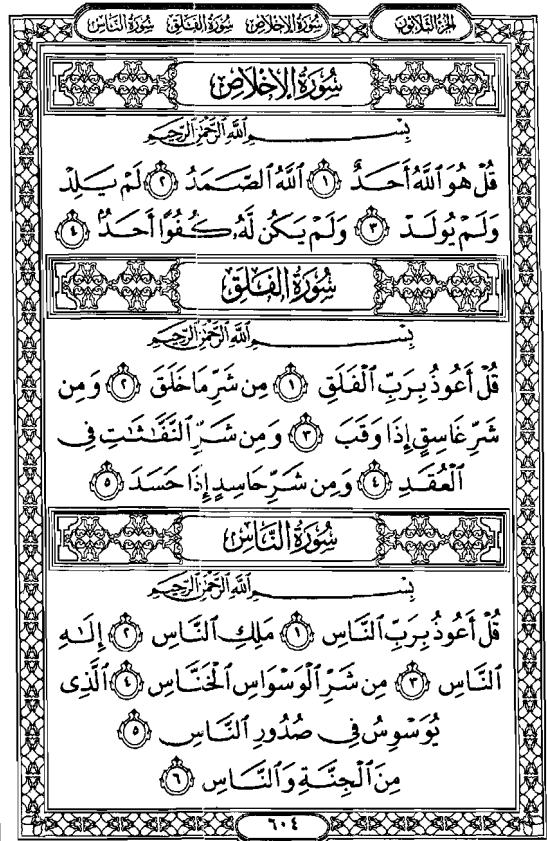 الجزء الثلاثون سورة الإخلاص سورة الفلق سورة الناس
سُورَةُ الإِخْلَاصِ
بِسْمِ ٱللَّهِ ٱلرَّحْمَٰنِ ٱلرَّحِيمِ
قُلْ هُوَ ٱللَّهُ أَحَدٌ ١ ٱللَّهُ ٱلصَّمَدُ ٢ لَمْ يَلِدْ
وَلَمْ يُولَدْ ٣ وَلَمْ يَكُن لَّهُۥ كُفُوًا أَحَدٌۢ ٤
سُورَةُ الفَلَقِ
بِسْمِ ٱللَّهِ ٱلرَّحْمَٰنِ ٱلرَّحِيمِ
قُلْ أَعُوذُ بِرَبِّ ٱلْفَلَقِ ١ مِن شَرِّ مَا خَلَقَ ٢ وَمِن
شَرِّ غَاسِقٍ إِذَا وَقَبَ ٣ وَمِن شَرِّ ٱلنَّفَّٰثَٰتِ فِى
ٱلْعُقَدِ ٤ وَمِن شَرِّ حَاسِدٍ إِذَا حَسَدَ ٥
سُورَةُ النَّاسِ
بِسْمِ ٱللَّهِ ٱلرَّحْمَٰنِ ٱلرَّحِيمِ
قُلْ أَعُوذُ بِرَبِّ ٱلنَّاسِ ١ مَلِكِ ٱلنَّاسِ ٢ إِلَٰهِ
ٱلنَّاسِ ٣ مِن شَرِّ ٱلْوَسْوَاسِ ٱلْخَنَّاسِ ٤ ٱلَّذِى
يُوَسْوِسُ فِى صُدُورِ ٱلنَّاسِ ٥
مِنَ ٱلْجِنَّةِ وَٱلنَّاسِ ٦
٦٠٤